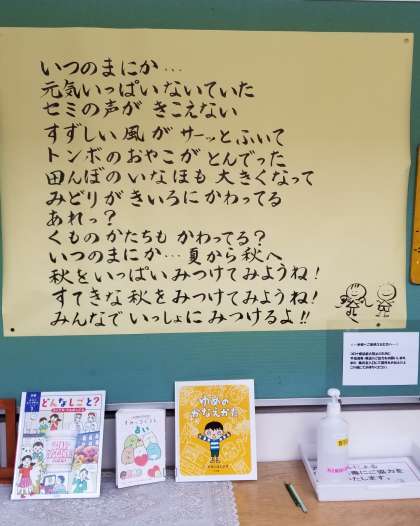 いつのまにか…
元気いっぱいないていた
セミの声がきこえない
すずしい風がサーッとふいて
トンボのおやこがとんでった
田んぼのいなほも大きくなって
みどりがきいろにかわってる
あれっ?
くものかたちもかわってる?
いつのまにか…夏から秋へ
秋をいっぱいみつけてみようね!
すてきな秋をみつけてみようね!
みんなでいっしょにみつけるよ!!
どんなしごと?
占い
ゆめの
かなえかた